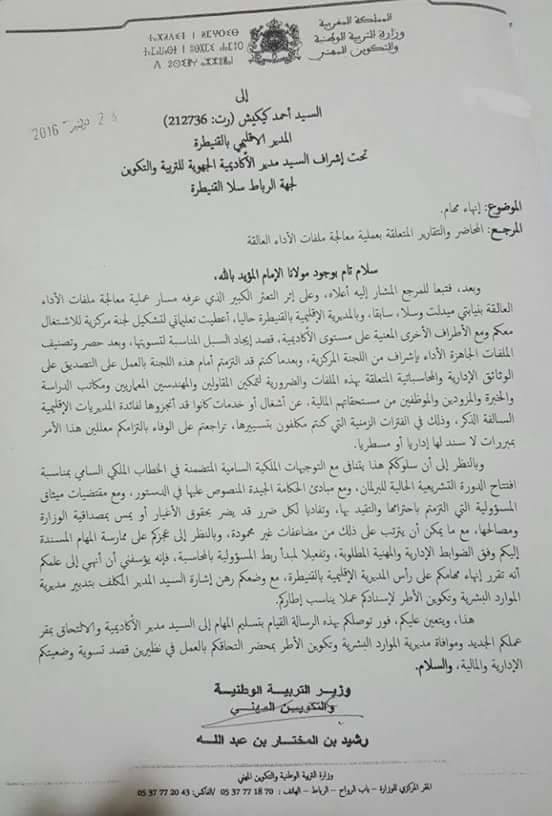 المملكة المغربية
وزارة التربية الوطنية
والتكوين المهني
إلى
السيد أحمد كيكيش (رت: 212736)
المدير الإقليمي بالقنيطرة
2016
تحت إشراف السيد مدير الأكاديمية الجهوية للتربية والتكوين
لجهة الرباط سلا القنيطرة
الموضوع: إنهاء مهام.
المرجع: المحاضر والتقارير المتعلقة بعملية معالجة ملفات الأداء العالقة
سلام تام بوجود مولانا الإمام المؤيد بالله،
وبعد، فتبعا للمرجع المشار إليه أعلاه، وعلى إثر التعثر الكبير الذي عرفه مسار عملية معالجة ملفات الأداء
العالقة بنيابتي ميدلت وسلا، سابقا، وبالمديرية الإقليمية بالقنيطرة حاليا، أعطيت تعليماتي لتشكيل لجنة مركزية للاشتغال
معكم ومع الأطراف الأخرى المعنية على مستوى الأكاديمية، قصد إيجاد السبل المناسبة لتسويتها، وبعد حصر وتصنيف
الملفات الجاهزة الأداء بإشراف من اللجنة المركزية، وبعدما كنتم قد التزمتم أمام هذه اللجنة بالعمل على التصديق على
الوثائق الإدارية والمحاسباتية المتعلقة بهذه الملفات والضرورية لتمكين المقاولين والمهندسين المعماريين ومكاتب الدراسة
والخبرة والمزودين والموظفين من مستحقاتهم المالية، عن أشغال أو خدمات كانوا قد أنجزوها لفائدة المديريات الإقليمية
السالفة الذكر، وذلك في الفترات الزمنية التي كنتم مكلفون بتسييرها، تراجعتم على الوفاء بالتزامكم معللين هذا الأمر
بمبررات لا سند لها إداريا أو مسطريا.
وبالنظر إلى أن سلوككم هذا يتنافى مع التوجيهات الملكية السامية المتضمنة في الخطاب الملكي السامي بمناسبة
افتتاح الدورة التشريعية الحالية للبرلمان، ومع مبادئ الحكامة الجيدة المنصوص عليها في الدستور، ومع مقتضيات ميثاق
المسؤولية التي التزمتم باحترامها والتقيد بها، وتفاديا لكل ضرر قد يضر بحقوق الأغيار أو يمس بمصداقية الوزارة
ومصالحها، مع ما يمكن أن يترتب على ذلك من مضاعفات غير محمودة، وبالنظر إلى عجزكم على ممارسة المهام المسندة
إليكم وفق الضوابط الإدارية والمهنية المطلوبة، وتفعيلا لمبدأ ربط المسؤولية بالمحاسبة، فإنه يؤسفني أن أنهي إلى علمكم
أنه تقرر إنهاء مهامكم على رأس المديرية الإقليمية بالقنيطرة، مع وضعكم رهن إشارة السيد المدير المكلف بتدبير مديرية
الموارد البشرية وتكوين الأطر لإسنادكم عملا يناسب إطاركم.
هذا، ويتعين عليكم، فور توصلكم بهذه الرسالة القيام بتسليم المهام إلى السيد مدير الأكاديمية والالتحاق بمقر
عملكم الجديد وموافاة مديرية الموارد البشرية وتكوين الأطر بمحضر التحاقكم بالعمل في نظيرين قصد تسوية وضعيتكم
الإدارية والمالية، والسلام.
وزير التربية الوطنية
والتكوين المهني
رشيد بن المختار بن عبد الله
وزارة التربية الوطنية والتكوين المهني
المقر المركزي للوزارة – باب الرواح – الرباط – الهاتف : 70 18 77 37 05 /الفاكس: 43 20 77 37 05